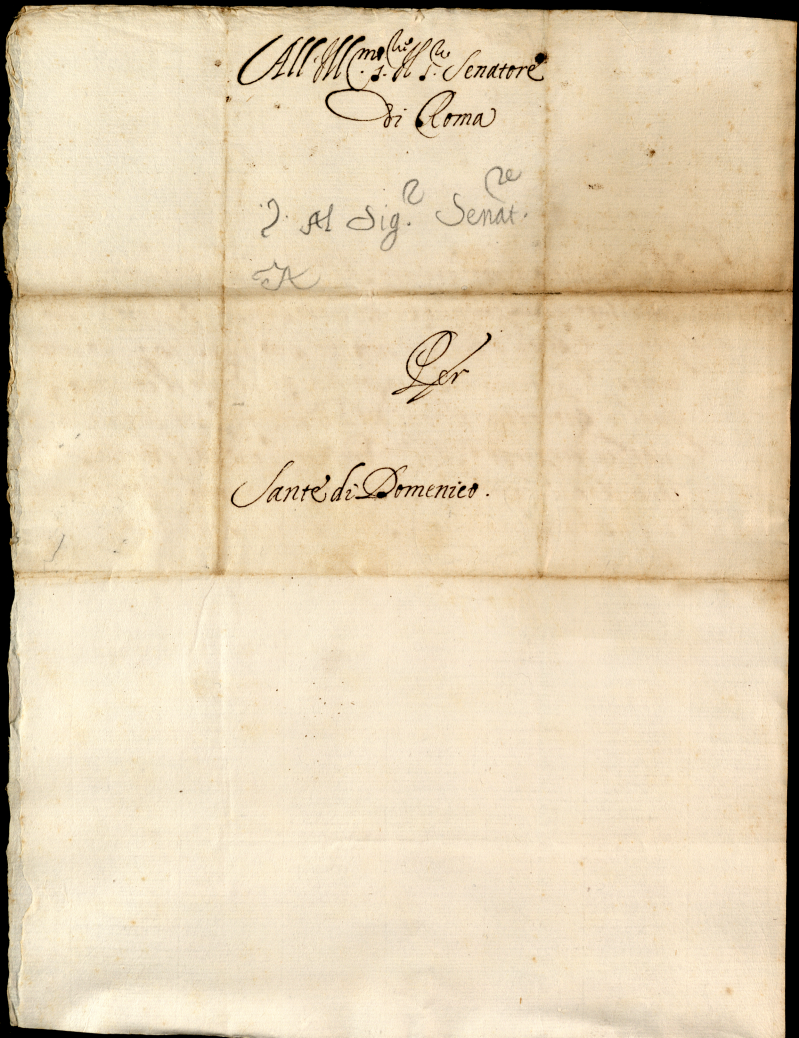 All'Ill.mo S.re Il S.r Senatore
di Roma
Al Sig.r Senat.re
Per
Sante di Domenico.